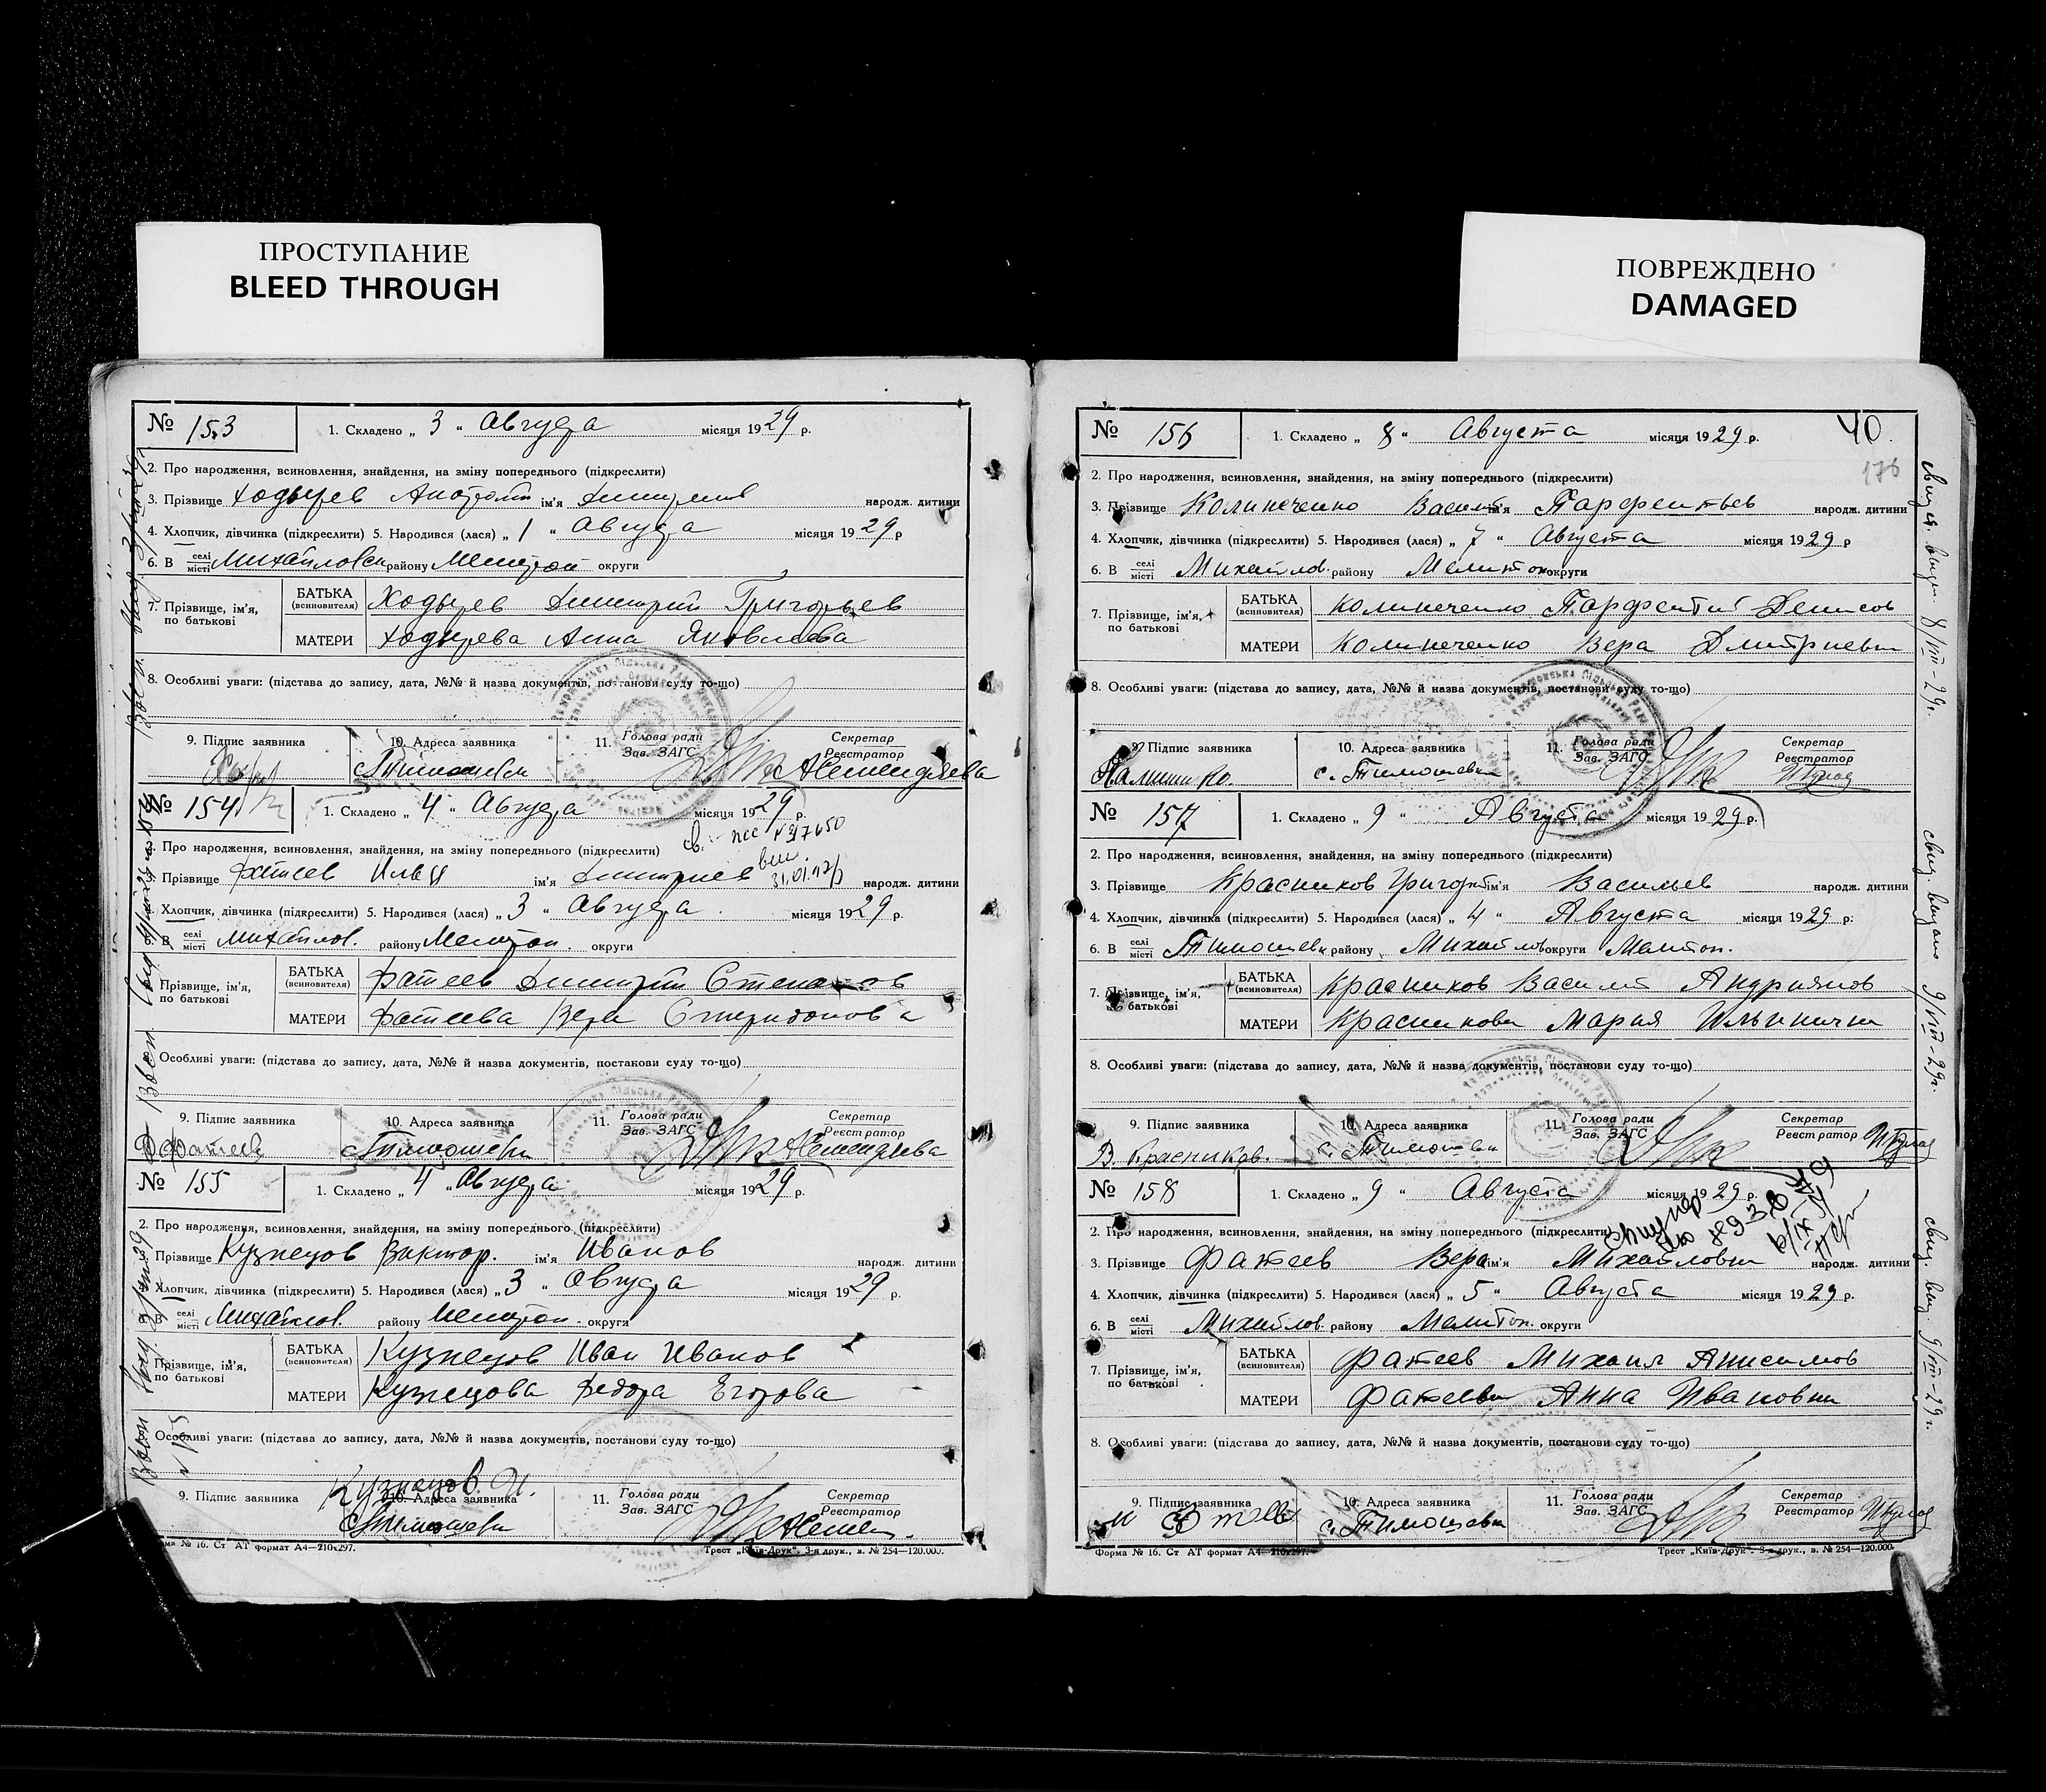 ПРОСТУПАНИЕ
BLEED THROUGH
ПОВРЕЖДЕНО
DAMAGED
№ 153 1. Складено „ 3 “ Августа місяця 1929 р.
2. Про народження, всиновлення, знайдення, на зміну попереднього (підкреслити)
3. Прізвище ім'я народж. дитини
4. Хлопчик, дівчинка (підкреслити) 5. Народився (лася) „ 1 “ Августа місяця 1929 р
6. В селі місті Михайловск району Мелитоп округи
7. Прізвище, ім'я, по батькові БАТЬКА (всиновителя) Дмитрий Григорьев
МАТЕРИ Анна Яковлева
8. Особливі уваги: (підстава до запису, дата, №№ й назва документів, постанови суду то-що)
9. Підпис заявника 10. Адреса заявника 11. Голова ради Зав. ЗАГС Секретар Реєстратор
с. Тимошевка
№ 154 1. Складено „ 4 “ Августа місяця 1929 р.
2. Про народження, всиновлення, знайдення, на зміну попереднього (підкреслити)
Прізвище Фатеев Илья ім'я Дмитриев народж. дитини
Хлопчик, дівчинка (підкреслити) 5. Народився (лася) „ 3 “ Августа місяця 1929 р.
В селі місті Михайлов. району Мелитоп. округи
Прізвище, ім'я, по батькові БАТЬКА (всиновителя) Фатеев Дмитрий Степанов
МАТЕРИ Фатеева Вера Спиридонова
Особливі уваги: (підстава до запису, дата, №№ й назва документів, постанови суду то-що)
9. Підпис заявника 10. Адреса заявника 11. Голова ради Зав. ЗАГС Секретар Реєстратор
Фатеев с. Тимошевка
№ 155 1. Складено „ 4 “ Августа місяця 1929 р.
2. Про народження, всиновлення, знайдення, на зміну попереднього (підкреслити)
Прізвище Кузнецов Виктор. ім'я Иванов народж. дитини
Хлопчик, дівчинка (підкреслити) 5. Народився (лася) „ 3 “ Августа місяця 1929 р.
селі місті Михайлов. району Мелитоп. округи
Прізвище, ім'я, по батькові БАТЬКА (всиновителя) Кузнецов Иван Иванов
МАТЕРИ Кузнецова Федора Егорова
Особливі уваги: (підстава до запису, дата, №№ й назва документів, постанови суду то-що)
Кузнецов. И.
9. Підпис заявника 10. Адреса заявника 11. Голова ради Зав. ЗАГС Секретар Реєстратор
с. Тимошевка
Форма № 16. Ст АТ формат А4—210х297. Трест „Київ-Друк“. 3-я друк., з. № 254—120.000.
№ 156 1. Складено „ 8 “ Августа місяця 1929 р. 40.
176
2. Про народження, всиновлення, знайдення, на зміну попереднього (підкреслити)
3. Прізвище Колинеченко Василий ім'я Парфентьев народж. дитини
4. Хлопчик, дівчинка (підкреслити) 5. Народився (лася) „ 7 “ Августа місяця 1929 р
6. В селі місті Михайлов. району Мелитоп округи
7. Прізвище, ім'я, по батькові БАТЬКА (всиновителя) Колинеченко Парфентий Денисов
МАТЕРИ Колинеченко Вера Дмитриевн
8. Особливі уваги: (підстава до запису, дата, №№ й назва документів, постанови суду то-що)
9. Підпис заявника 10. Адреса заявника 11. Голова ради Зав. ЗАГС Секретар Реєстратор
с. Тимошевка
№ 157 1. Складено „ 9 “ Августа місяця 1929 р.
2. Про народження, всиновлення, знайдення, на зміну попереднього (підкреслити)
3. Прізвище Красников Григорий ім'я Васильев народж. дитини
4. Хлопчик, дівчинка (підкреслити) 5. Народився (лася) „ 4 “ Августа місяця 1929 р.
6. В селі місті Тимошевк району Михайлов округи Мелитоп.
7. Прізвище, ім'я, по батькові БАТЬКА (всиновителя) Красников Василий Андриянов
МАТЕРИ Красникова Мария Ильинична
8. Особливі уваги: (підстава до запису, дата, №№ й назва документів, постанови суду то-що)
9. Підпис заявника 10. Адреса заявника 11. Голова ради Зав. ЗАГС Секретар Реєстратор
В. Красников. с. Тимошевка
№ 158 1. Складено „ 9 “ Августа місяця 1929 р.
2. Про народження, всиновлення, знайдення, на зміну попереднього (підкреслити)
3. Прізвище Фатеев Вера ім'я Михайловна народж. дитини
4. Хлопчик, дівчинка (підкреслити) 5. Народився (лася) „ 5 “ Августа місяця 1929 р.
6. В селі місті Михайлов. району Мелитоп. округи
7. Прізвище, ім'я, по батькові БАТЬКА (всиновителя) Фатеев Михаил Анисимов
МАТЕРИ Фатеева Анна Ивановна
8. Особливі уваги: (підстава до запису, дата, №№ й назва документів, постанови суду то-що)
9. Підпис заявника 10. Адреса заявника 11. Голова ради Зав. ЗАГС Секретар Реєстратор
с. Тимошевка
Форма № 16. Ст АТ формат А4—210х297. Трест „Київ-Друк“. 3-я друк., з. № 254—120.000.